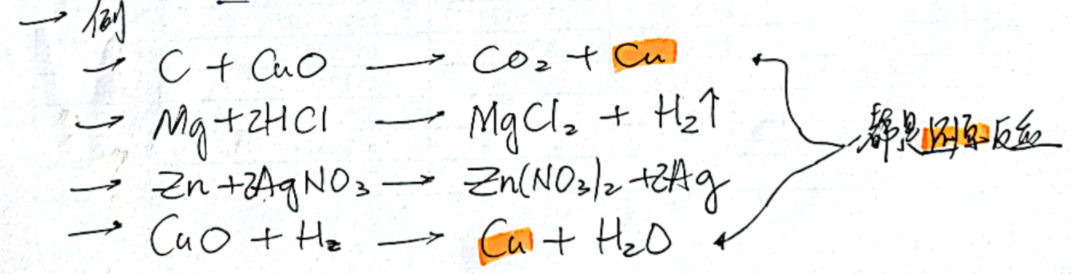 → 例
→ C + CuO → CO₂ + Cu
→ Mg + 2HCl → MgCl₂ + H₂↑
→ Zn + 2AgNO₃ → Zn(NO₃)₂ + 2Ag
→ CuO + H₂ → Cu + H₂O
都是还原反应